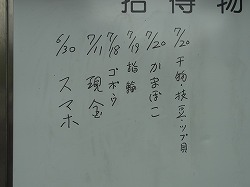 拾得物
7/20 干物・枝豆・ツブ貝
7/20 かまぼこ
7/19 指輪
7/18 ゴボウ
7/11 現金
6/30 スマホ